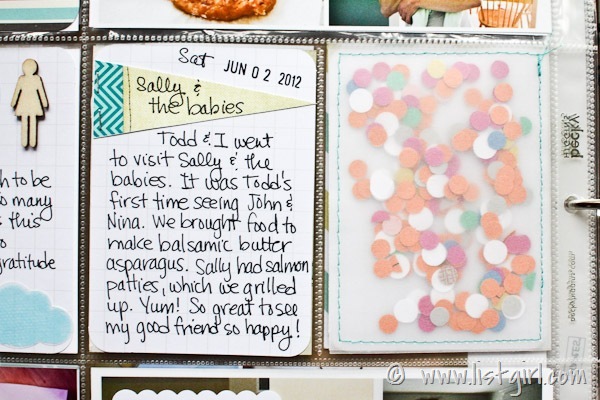 Sat JUN 02 2012
Sally &
the babies
Todd & I went
to visit Sally & the
babies. It was Todd's
first time seeing John &
Nina. We brought food to
make balsamic butter
asparagus. Sally had salmon
patties, which we grilled
up. Yum! So great to see
my good friend so happy!
h to be
so many
& this
to
gratitude
becky
© www.listgirl.com